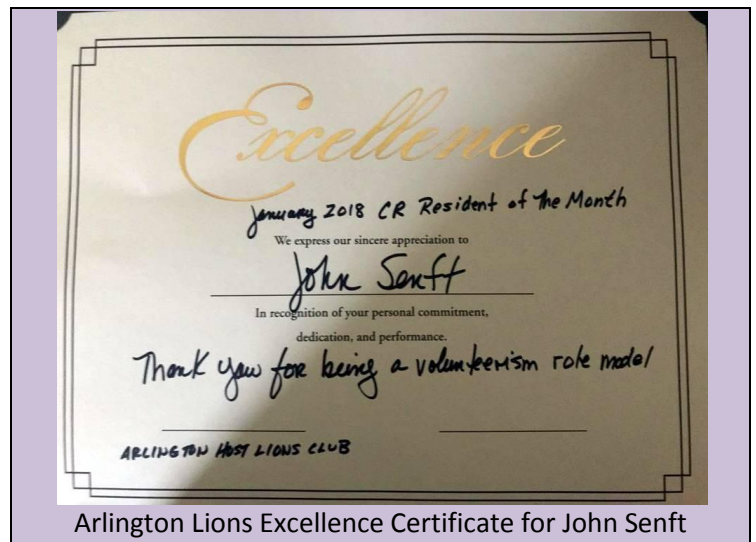 Excellence
January 2018 CR Resident of the Month
We express our sincere appreciation to
John Senft
In recognition of your personal commitment,
dedication, and performance.
Thank you for being a volunteerism role model
ARLINGTON HOST LIONS CLUB
Arlington Lions Excellence Certificate for John Senft